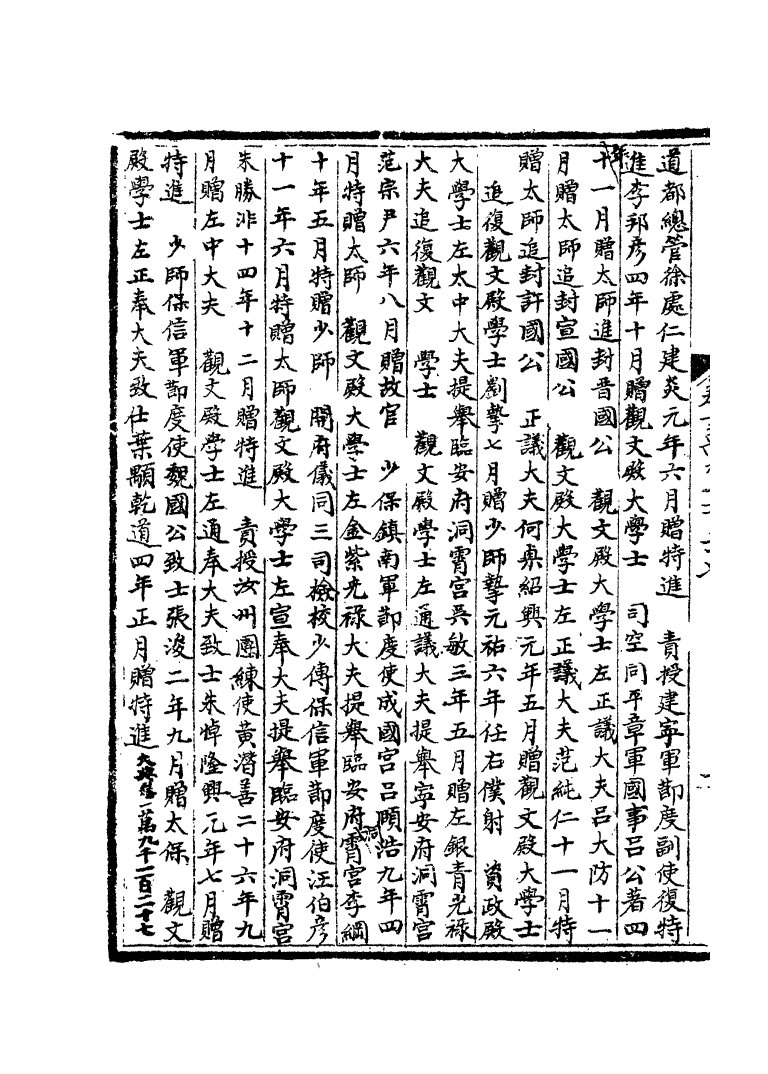 道都總管徐處仁建炎元年六月贈特進　責授建寧軍節度副使復特
進李邦彦四年十月贈觀文殿大學士　司空同平章軍國事呂公著四
年十一月贈太師進封晋國公　觀文殿大學士左正議大夫呂大防十一
月贈太師追封宣國公　觀文殿大學士左正議大夫范純仁十一月特
贈太師追封許國公　正議大夫何㮚紹興元年五月贈觀文殿大學士
追復觀文殿學士劉摯七月贈少師摯元祐六年任右僕射　資政殿
大學士左太中大夫提舉臨安府洞霄宮吳敏三年五月贈左銀青光祿
大夫追復觀文　學士　觀文殿學士左通議大夫提舉寧安府洞霄宮
范宗尹六年八月贈故官　少保鎮南軍節度使成國宮呂頤浩九年四
月特贈太師　觀文殿大學士左金紫光祿大夫提舉臨安府洞霄宮李綱
十年五月特贈少師　開府儀同三司檢校少傅保信軍節度使汪伯彦
十一年六月特贈太師觀文殿大學士左宣奉大夫提舉臨安府洞霄宮
朱勝非十四年十二月贈特進　責授汝州團練使黃潛善二十六年九
月贈左中大夫　觀文殿學士左通奉大夫致士朱倬隆興元年七月贈
特進　少師保信軍節度使魏國公致士張浚二年九月贈太保　觀文
殿學士左正奉大夫致仕葉顒乾道四年正月贈特進大典卷一萬九千一百二十七